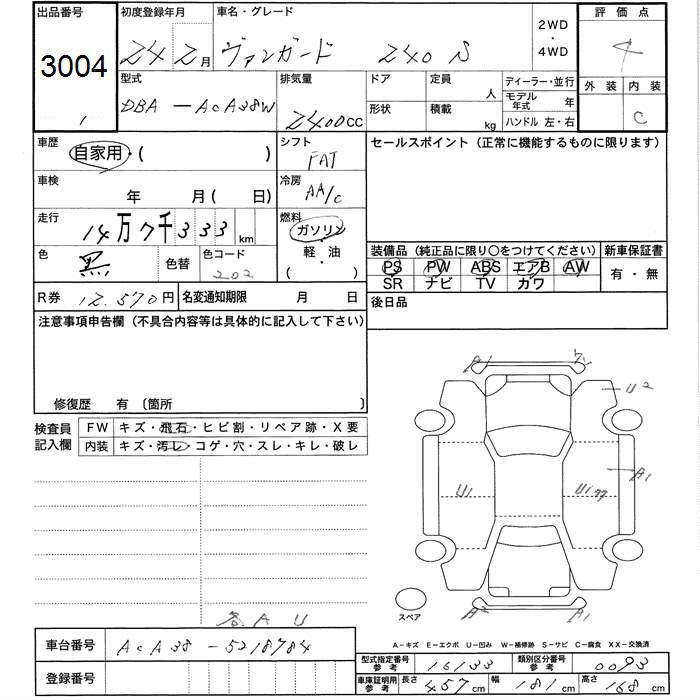 出品番号
3004
初度登録年月
24 2月
車名・グレード
ヴァンガード 240 S
2WD
・
4WD
評価点
4
外装 内装
C
型式
DBA-ACA38W
排気量
2400cc
ドア
形状
定員
人
積載
kg
ディーラー・並行
モデル年式 年
ハンドル 左・右
車歴
自家用・( )
シフト
FAT
セールスポイント (正常に機能するものに限ります)
車検
年 月( 日)
冷房
AA/C
走行
14万7千333km
燃料
ガソリン
・
軽・油
( )
色
黒
色替
色コード
202
装備品 (純正品に限り○をつけてください)
PS PW ABS エアB AW
SR ナビ TV カワ
新車保証書
有・無
R券 12,570円
名変通知期限 月 日
後日品
注意事項申告欄 (不具合内容等は具体的に記入して下さい)
修復歴 有 〔箇所 〕
検査員
記入欄
FW キズ・飛石・ヒビ割・リペア跡・X要
内装 キズ・汚レ・コゲ・穴・スレ・キレ・破レ
A1
U2
A1
U1
スペア
A2
A1
各 A U
車台番号
ACA38-5218784
登録番号
A-キズ E-エクボ U-凹み W-補修跡 S-サビ C-腐食 XX-交換済
型式指定番号
参考
16133
類別区分番号
参考
0093
車庫証明用
参考
長さ 457cm
幅 181cm
高さ 168cm